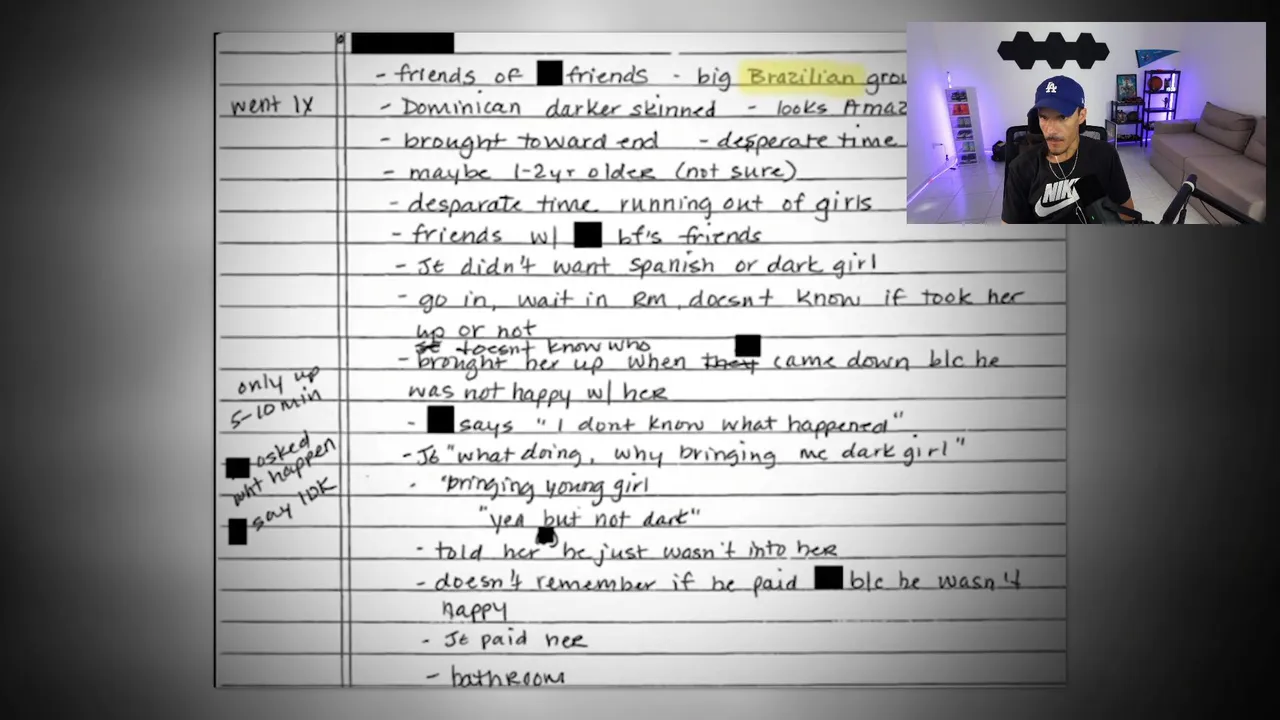 - friends of friends - big Brazilian grou
went 1x
- Dominican darker skinned - looks Amaz
- brought toward end - desperate time
- maybe 1-2yr older (not sure)
- desparate time running out of girls
- friends w/ bf's friends
- JE didn't want Spanish or dark girl
- go in, wait in Rm, doesnt know if took her
up or not
doesnt know who
- brought her up when they came down b/c he
was not happy w/ her
only up
5-10 min
- says "I dont know what happened"
asked
wht happen
say IDK
- JE "what doing, why bringing me dark girl"
- "bringing young girl
"yea but not dark"
- told her he just wasn't into her
- doesn't remember if he paid b/c he wasn't
happy
- JE paid her
- bathroom
NIK
LA